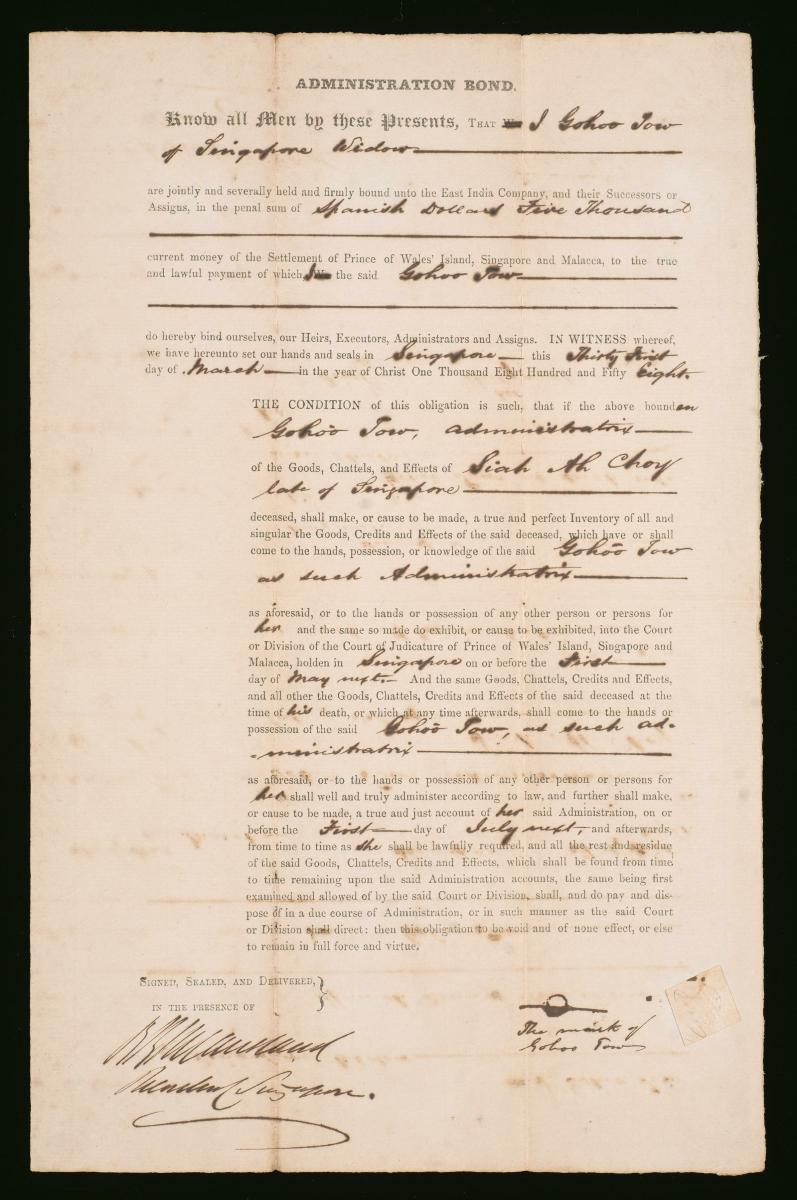 ADMINISTRATION BOND.
Know all Men by these Presents, THAT I Gohoo Tow
of Singapore Widow
are jointly and severally held and firmly bound unto the East India Company, and their Successors or
Assigns, in the penal sum of Spanish Dollars Five Thousand
current money of the Settlement of Prince of Wales' Island, Singapore and Malacca, to the true
and lawful payment of which, I the said Gohoo Tow
do hereby bind ourselves, our Heirs, Executors, Administrators and Assigns. IN WITNESS whereof,
we have hereunto set our hands and seals in Singapore this Thirty First
day of March in the year of Christ One Thousand Eight Hundred and Fifty Eight.
THE CONDITION of this obligation is such, that if the above bounden
Gohoo Tow, administratrix
of the Goods, Chattels, and Effects of Siah Ah Choy
late of Singapore
deceased, shall make, or cause to be made, a true and perfect Inventory of all and
singular the Goods, Credits and Effects of the said deceased, which have or shall
come to the hands, possession, or knowledge of the said Gohoo Tow
as such Administratrix
as aforesaid, or to the hands or possession of any other person or persons for
her and the same so made do exhibit, or cause to be exhibited, into the Court
or Division of the Court of Judicature of Prince of Wales' Island, Singapore and
Malacca, holden in Singapore on or before the First
day of May next. And the same Goods, Chattels, Credits and Effects,
and all other the Goods, Chattels, Credits and Effects of the said deceased at the
time of his death, or which at any time afterwards, shall come to the hands or
possession of the said Gohoo Tow, as such ad-
-ministratrix
as aforesaid, or to the hands or possession of any other person or persons for
her shall well and truly administer according to law, and further shall make,
or cause to be made, a true and just account of her said Administration, on or
before the First day of July next, and afterwards,
from time to time as she shall be lawfully required, and all the rest and residue
of the said Goods, Chattels, Credits and Effects, which shall be found from time
to time remaining upon the said Administration accounts, the same being first
examined and allowed of by the said Court or Division, shall, and do pay and dis-
pose of in a due course of Administration, or in such manner as the said Court
or Division shall direct: then this obligation to be void and of none effect, or else
to remain in full force and virtue.
SIGNED, SEALED, AND DELIVERED,
IN THE PRESENCE OF
The mark of
Gohoo Tow
Singapore.